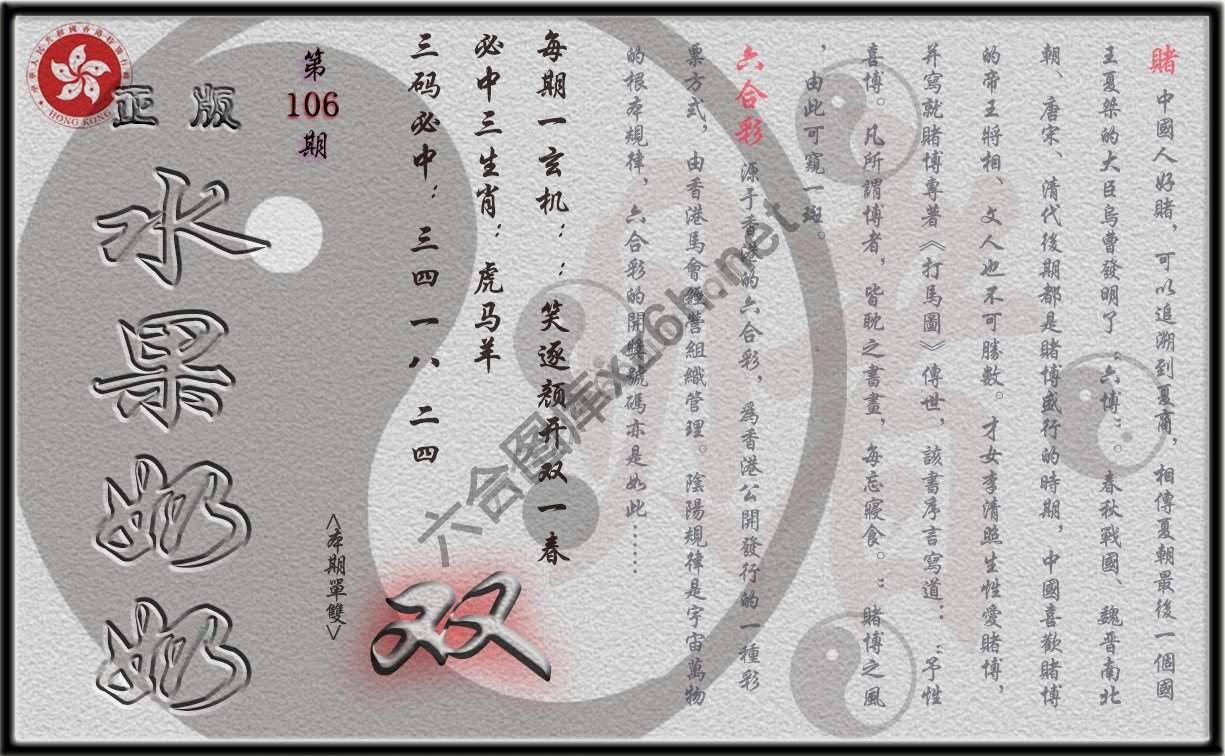 賭 中國人好賭，可以追溯到夏商，相傳夏朝最後一個國
王夏桀的大臣烏曹發明了“六博”。春秋戰國、魏晋南北
朝、唐宋、清代後期都是賭博盛行的時期，中國喜歡賭博
的帝王將相、文人也不可勝數。才女李清照生性愛賭博，
并寫就賭博專著《打馬圖》傳世，該書序言寫道：“予性
喜博。凡所謂博者，皆耽之書畫，每忘寢食。”賭博之風
，由此可窺一斑。
六合彩 源于香港的六合彩，爲香港公開發行的一種彩
票方式，由香港馬會經營組織管理。陰陽規律是宇宙萬物
的根本規律，六合彩的開獎號碼亦是如此……
每期一玄机：：笑逐颜开双一春
必中三生肖：虎马羊
三码必中：三四 一八 二四
双
<本期單雙>
第106期
正版
水果奶奶
中華人民共和國香港特別行政區
HONG KONG
六合图库